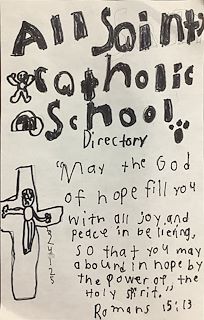 All Saints
Catholic
School
Directory
"May the God
of hope fill you
with all joy and
peace in believing,
so that you may
abound in hope by
the power of the
Holy Spirit."
Romans 15:13